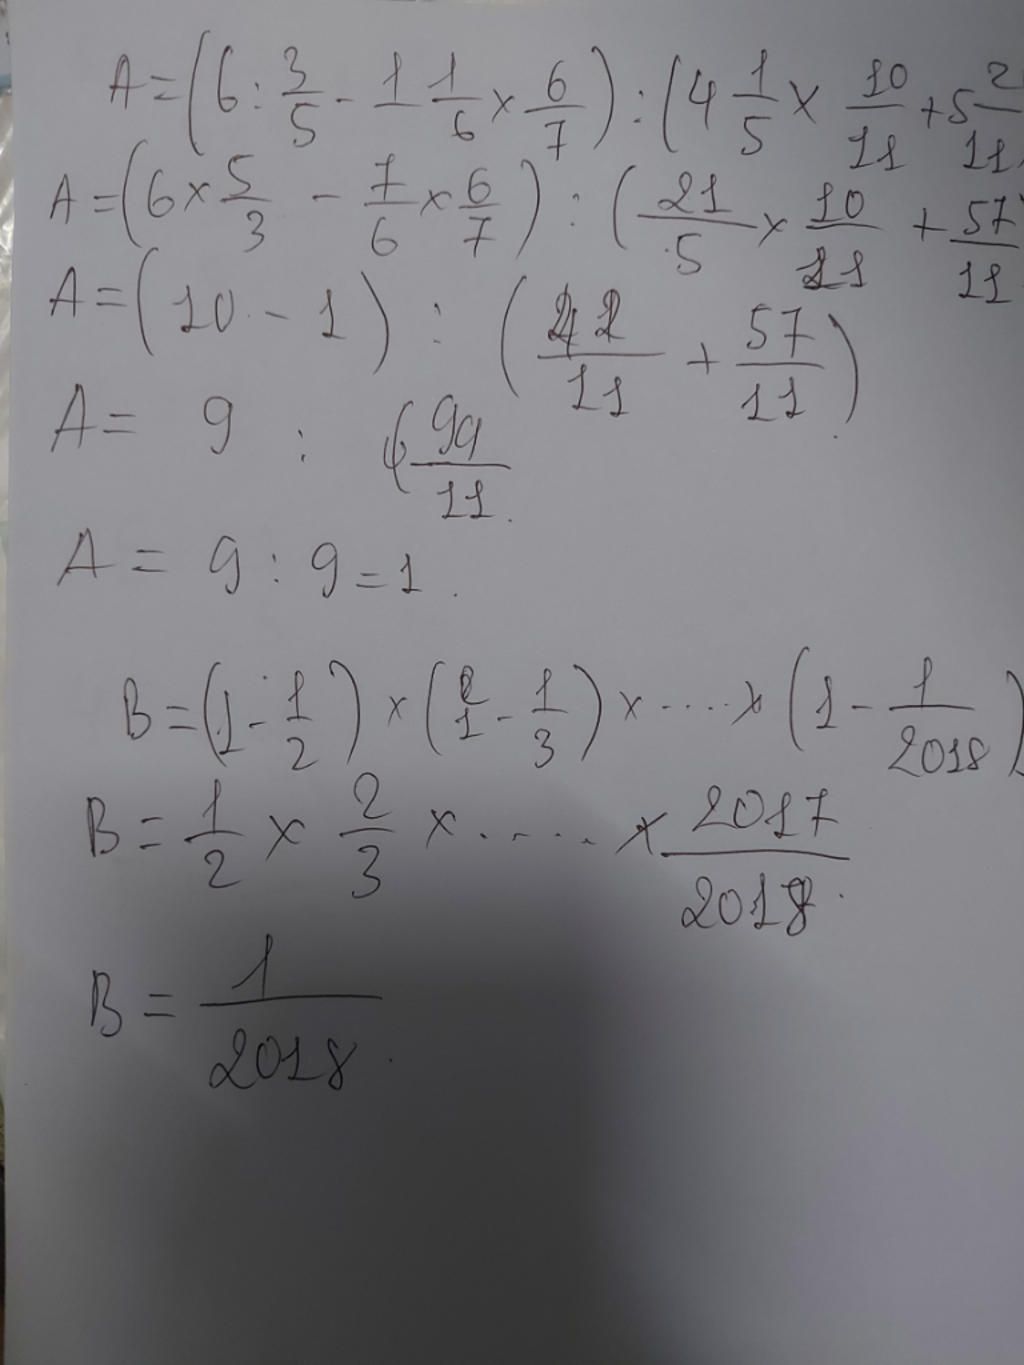 A = (6 : 3/5 - 1 1/6 × 6/7) : (4 1/5 × 10/11 + 5 2/11
A = (6 × 5/3 - 7/6 × 6/7) : (21/5 × 10/11 + 57/11
A = (10 - 1) : (42/11 + 57/11)
A = 9 : (99/11
A = 9 : 9 = 1.
B = (1 - 1/2) × (1 - 1/3) × ..... × (1 - 1/2018)
B = 1/2 × 2/3 × ..... × 2017/2018.
B = 1/2018.